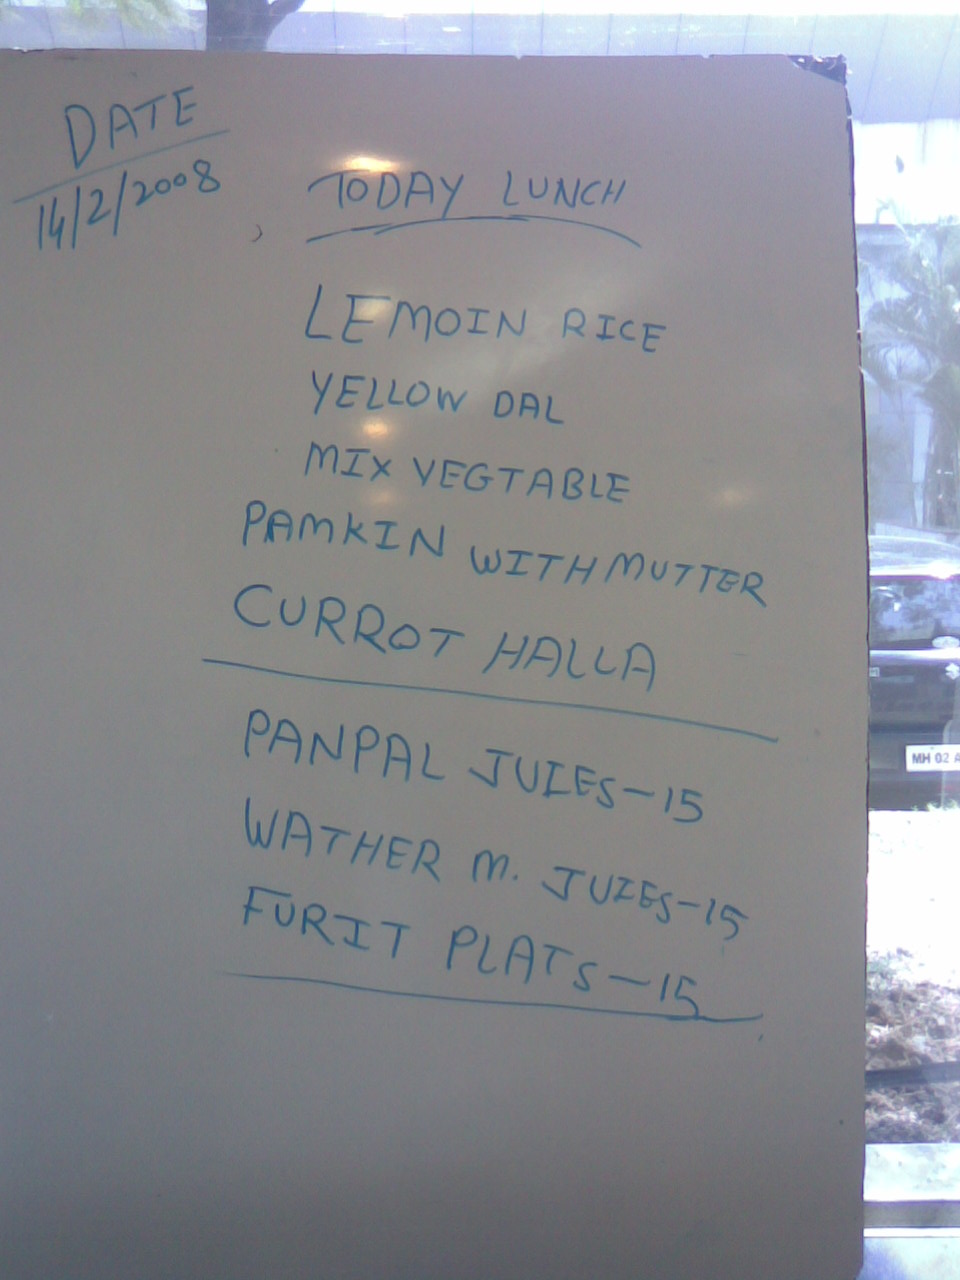 DATE
14/2/2008
TODAY LUNCH
LEMOIN RICE
YELLOW DAL
MIX VEGTABLE
PAMKIN WITH MUTTER
CURROT HALLA
PANPAL JUIES-15
WATHER M. JUIES-15
FURIT PLATS-15
MH 02 A